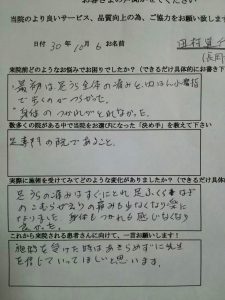 当院のより良いサービス、品質向上の為、ご協力をお願い致しま
日付 30年10月 お名前 西村
来院前どのようなお悩みでお困りでしたか?(できるだけ具体的にお書き下
・最初は足うら全体の痛みと、
で歩くのがつらかった。
・身体のつかれがとれなかった。
数多くの院がある中で当院をお選びになった「決め手」を教えて下さい
足専門の院であること。
実際に施術を受けてみてどのような変化がありましたか?(できるだけ具体
足うらの痛みはすぐにとれ足ふくらはぎ
のこむらがえりの痛みもなくなり楽に
なりました。身体もつかれも感じなくなり
良かった。
これから来院される患者さんに向けて、一言お願いします!
施術を受けた時はあきらめずに先生
を信じていってほしいと思います。